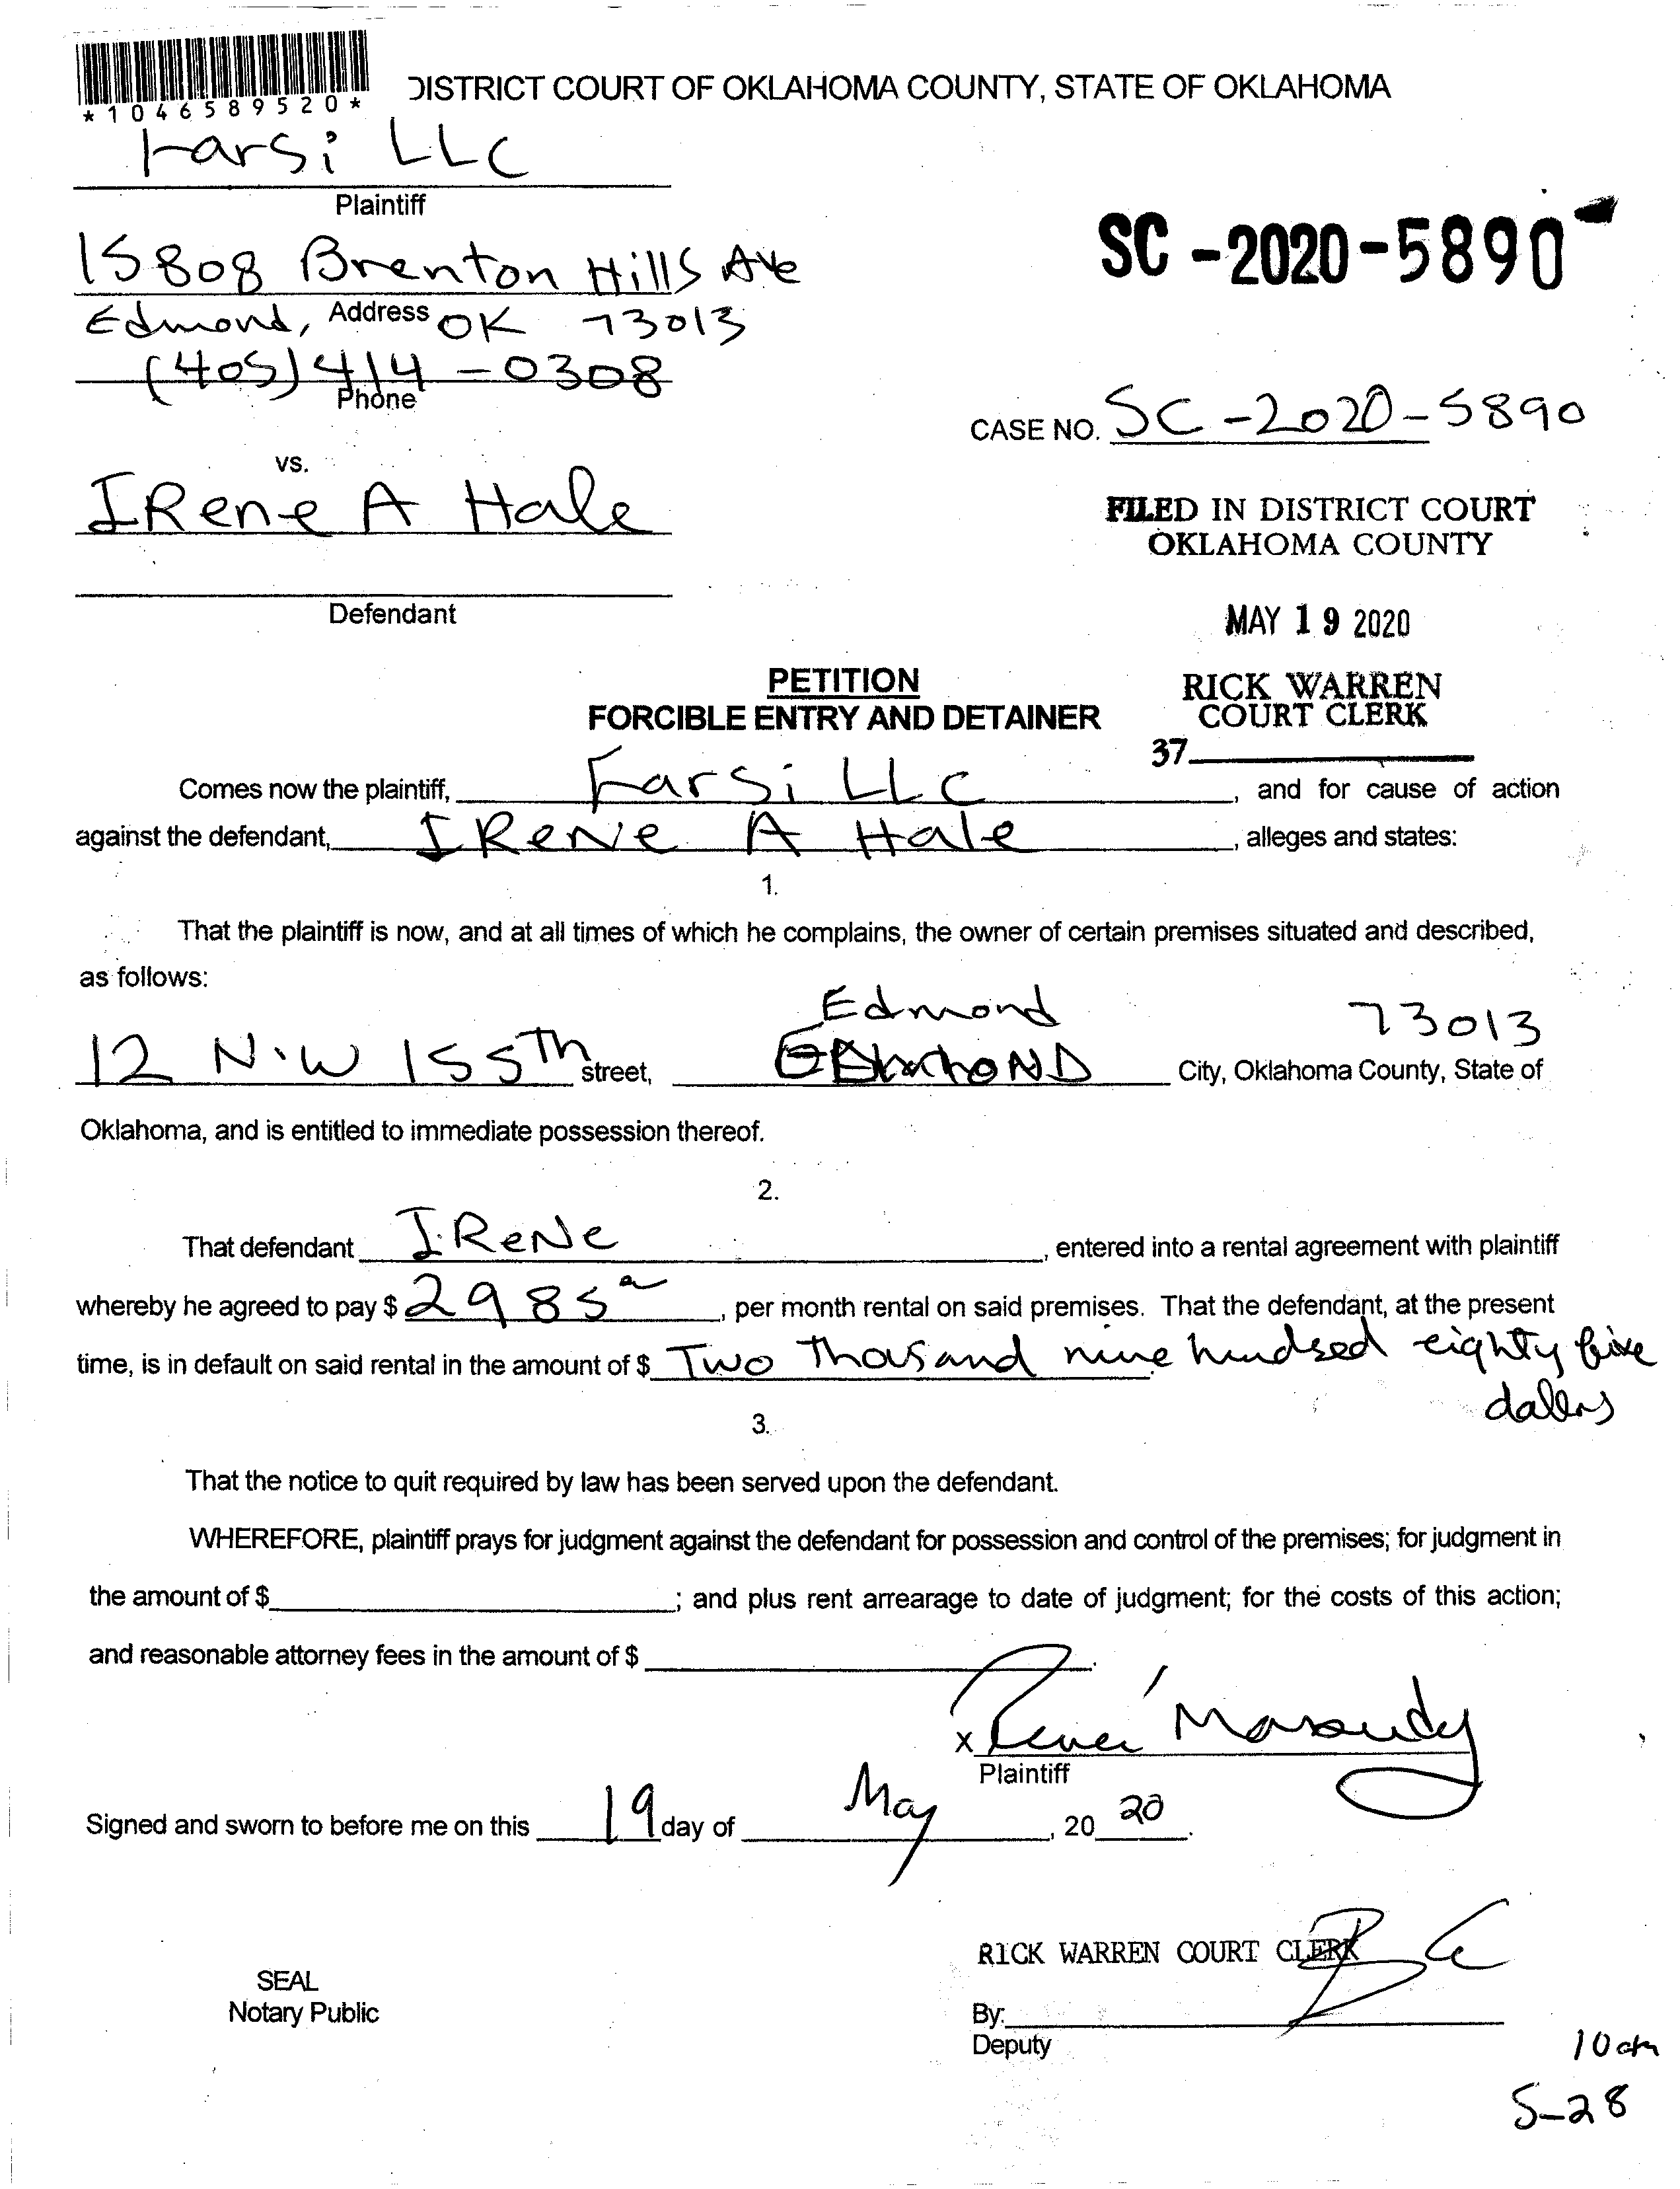 *1046589520*
DISTRICT COURT OF OKLAHOMA COUNTY, STATE OF OKLAHOMA
Farsi LLC
Plaintiff
15808 Brenton Hills Ave
Address
Edmond, OK 73013
(405) 414-0308
Phone
SC-2020-5890
CASE NO. SC-2020-5890
vs.
IRene A Hale
Defendant
FILED IN DISTRICT COURT
OKLAHOMA COUNTY
MAY 19 2020
RICK WARREN
COURT CLERK
37
PETITION
FORCIBLE ENTRY AND DETAINER
Comes now the plaintiff, Farsi LLC, and for cause of action
against the defendant, IReNe A Hale, alleges and states:
1.
That the plaintiff is now, and at all times of which he complains, the owner of certain premises situated and described,
as follows:
Edmond 73013
12 N.W 155Th street, City, Oklahoma County, State of
Oklahoma, and is entitled to immediate possession thereof.
2.
That defendant IReNe, entered into a rental agreement with plaintiff
whereby he agreed to pay $ 2985, per month rental on said premises. That the defendant, at the present
time, is in default on said rental in the amount of $ Two Thousand nine hundsed eighty five
dallers
3.
That the notice to quit required by law has been served upon the defendant.
WHEREFORE, plaintiff prays for judgment against the defendant for possession and control of the premises; for judgment in
the amount of $ ; and plus rent arrearage to date of judgment; for the costs of this action;
and reasonable attorney fees in the amount of $ .
x
Plaintiff
Signed and sworn to before me on this 19 day of May, 20 20.
RICK WARREN COURT CLERK
SEAL
Notary Public
By:
Deputy
10am
5-28